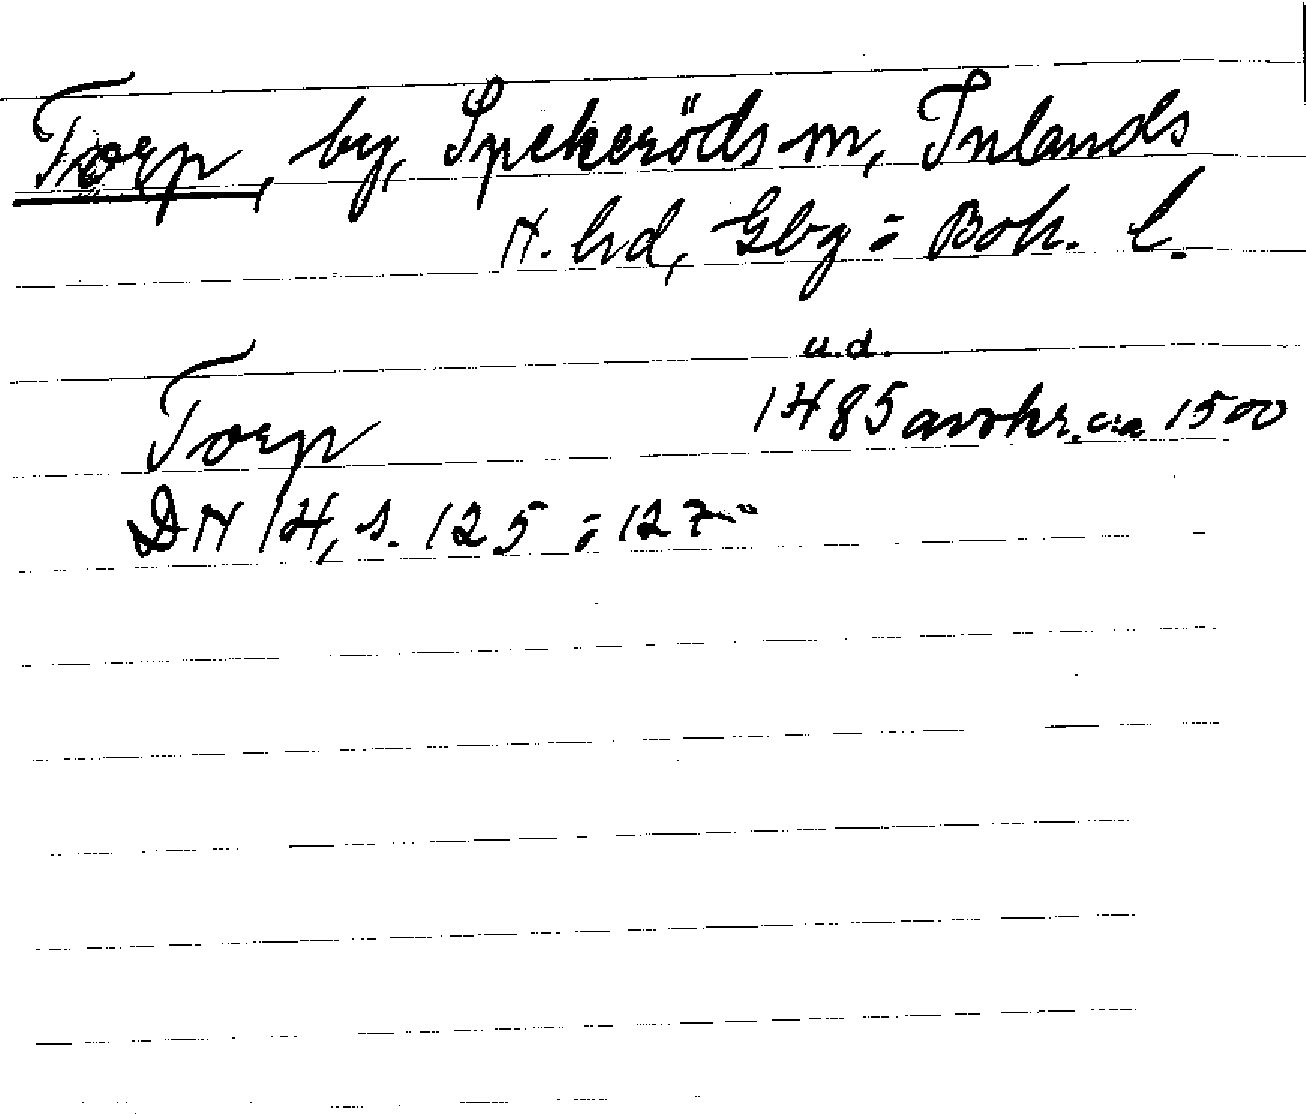 Torp, by, Spekeröds sn, Inlands
N. hd, Gbg = Boh. l.
u.d.
Torp 1485 avskr. ca 1500
DN 14, s. 125 = 127